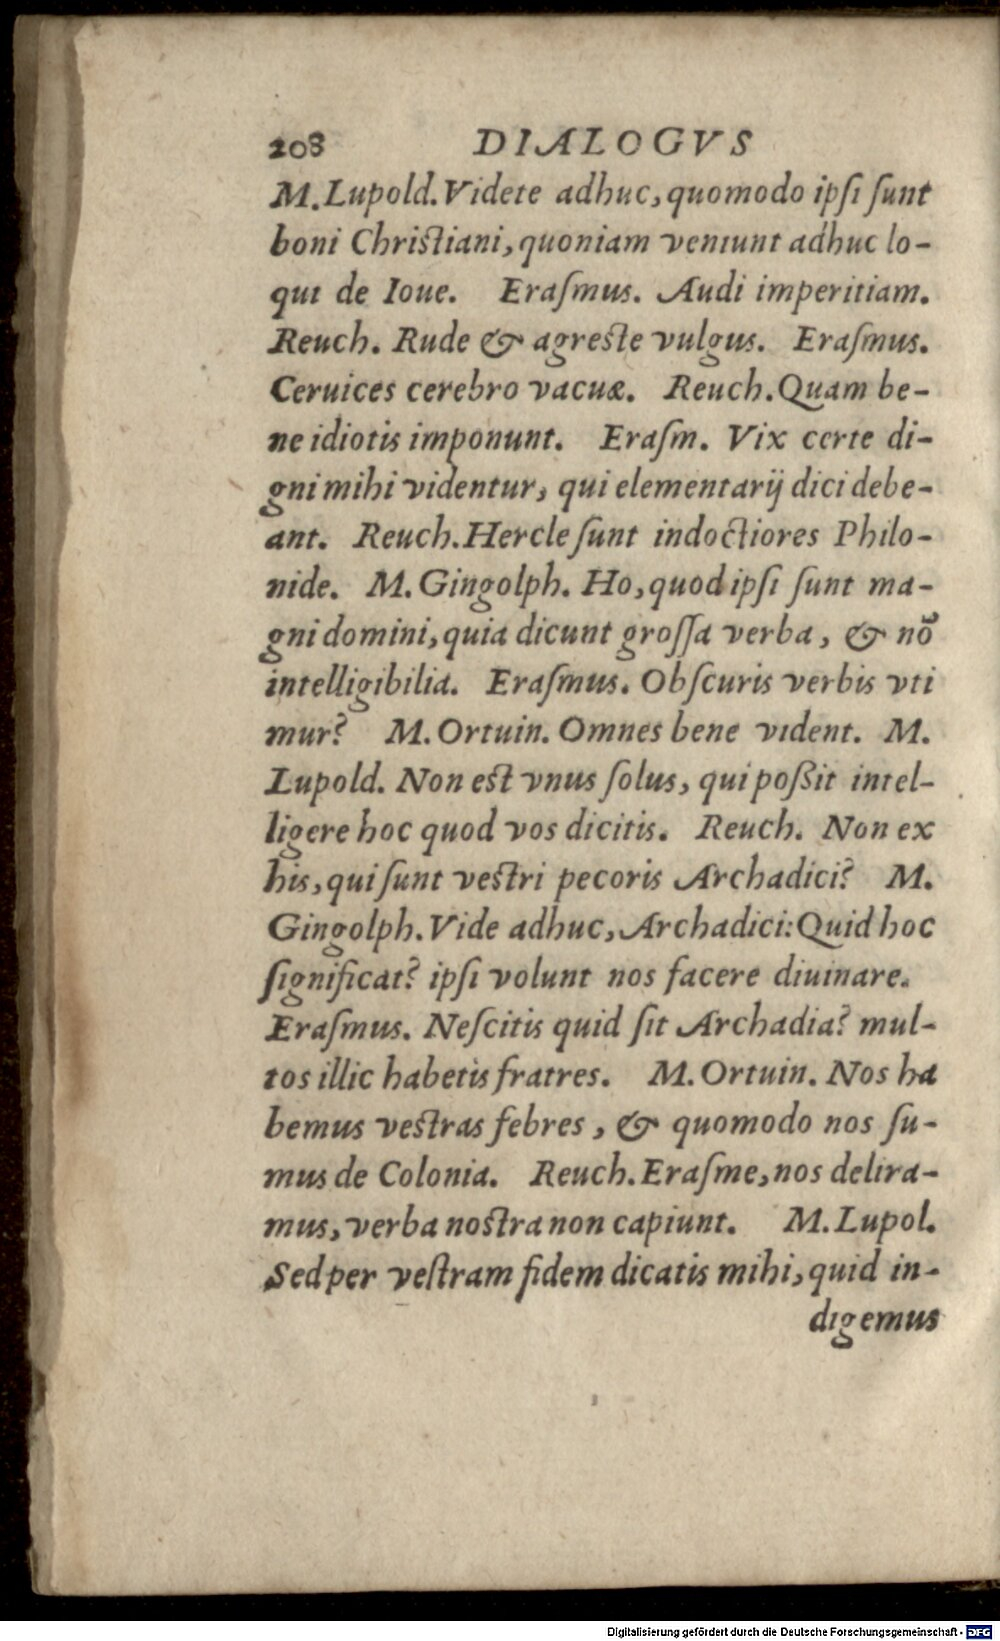 208 DIALOGVS
M. Lupold. Videte adhuc, quomodo ipſi ſunt
boni Chriſtiani, quoniam veniunt adhuc lo-
qui de Ioue. Eraſmus. Audi imperitiam.
Reuch. Rude & agreſte vulgus. Eraſmus.
Ceruices cerebro vacuæ. Reuch. Quam be-
ne idiotis imponunt. Eraſm. Vix certe di-
gni mihi videntur, qui elementarij dici debe-
ant. Reuch. Hercle ſunt indoctiores Philo-
nide. M. Gingolph. Ho, quod ipſi ſunt ma-
gni domini, quia dicunt groſſa verba, & nõ
intelligibilia. Eraſmus. Obſcuris verbis vti
mur? M. Ortuin. Omnes bene vident. M.
Lupold. Non eſt vnus ſolus, qui poßit intel-
ligere hoc quod vos dicitis. Reuch. Non ex
his, qui ſunt veſtri pecoris Archadici? M.
Gingolph. Vide adhuc, Archadici: Quid hoc
ſignificat? ipſi volunt nos facere diuinare.
Eraſmus. Neſcitis quid ſit Archadia? mul-
tos illic habetis fratres. M. Ortuin. Nos ha
bemus veſtras febres, & quomodo nos ſu-
mus de Colonia. Reuch. Eraſme, nos delira-
mus, verba noſtra non capiunt. M. Lupol.
Sed per veſtram fidem dicatis mihi, quid in-
digemus
Digitalisierung gefördert durch die Deutsche Forschungsgemeinschaft - DFG